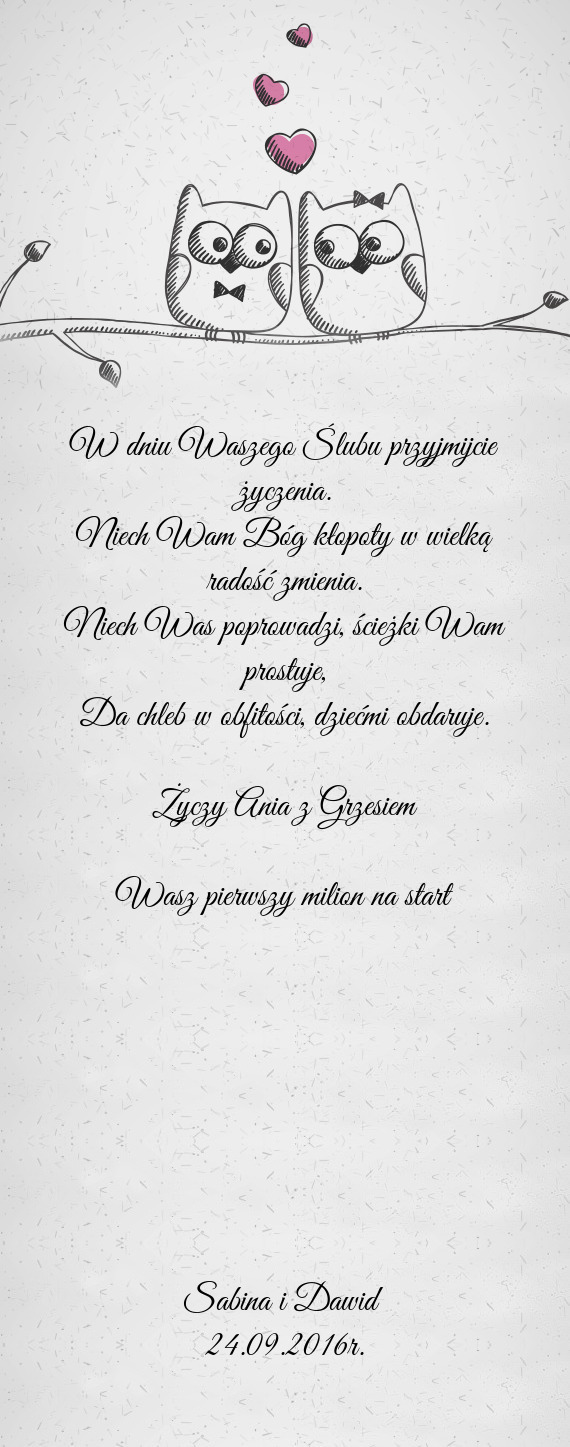 W dniu Waszego Ślubu przyjmijcie
życzenia.
Niech Wam Bóg kłopoty w wielką
radość zmienia.
Niech Was poprowadzi, ścieżki Wam
prostuje,
Da chleb w obfitości, dziećmi obdaruje.
Życzy Ania z Grzesiem
Wasz pierwszy milion na start
Sabina i Dawid
24.09.2016r.